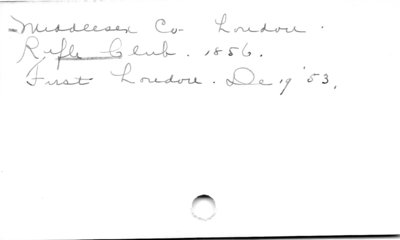 Middlesex Co London.
Rifle Club. 1856.
First London. De 19 '53.